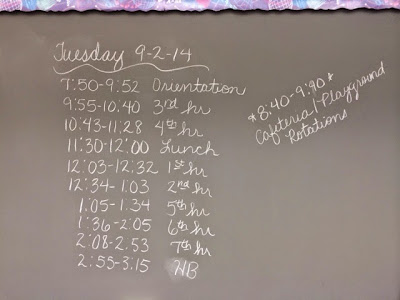 Tuesday 9-2-14
7:50-9:52 Orientation
9:55-10:40 3rd hr
10:43-11:28 4th hr
11:30-12:00 Lunch
12:03-12:32 1st hr
12:34-1:03 2nd hr
1:05-1:34 5th hr
1:36-2:05 6th hr
2:08-2:53 7th hr
2:55-3:15 HB
*8:40-9:90*
Cafeteria/Playground
Rotations